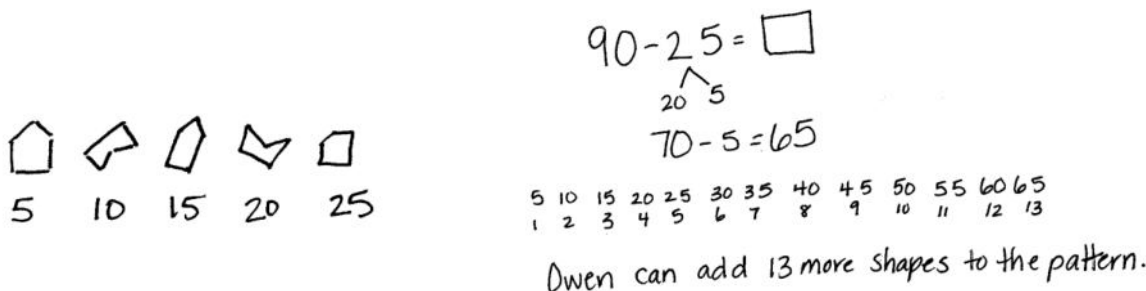 5 10 15 20 25
90-25=
20 5
70-5=65
5 10 15 20 25 30 35 40 45 50 55 60 65
1 2 3 4 5 6 7 8 9 10 11 12 13
Owen can add 13 more shapes to the pattern.